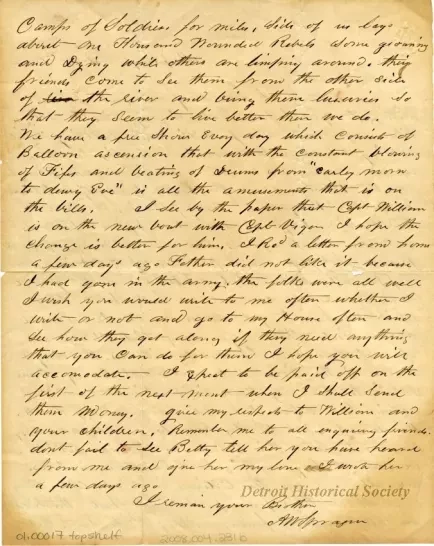 Camps of Soldiers for miles, Side of us lays
about one thousand Wounded Rebels Some groaning
and Dying while others are limping around. their
friends Come to See them from the other Side
of the river and bring them luxuries So
that they Seem to live better then we do.
We have a free Show Every day which Consists of
Balloon ascension that with the Constant blowing
of Fifes and beating of Drums "from Early morn
to dewy Eve" is all the amusements that is on
the bills. I See by the paper that Capt William
is on the new boat with Capt Vigor I hope the
Change is better for him. I Rcd a letter from home
a few days ago Father did not like it because
I had gone in the army. the folks were all well
I wish you would write to me often whether I
write or not and go to my House often and
See how they get along if they need anything
that you Can do for them I hope you will
accomodate. I Expect to be paid off on the
first of the next month when I Shall Send
them Money. give my respects to William and
your Children, Remember me to all enquiring friends.
dont fail to See Betty tell her you have heard
from me and give her my love I wrote her
a few days ago
I remain your Brother
A W Sprague
Detroit Historical Society
01.00017 topshelf
2008.004.281b